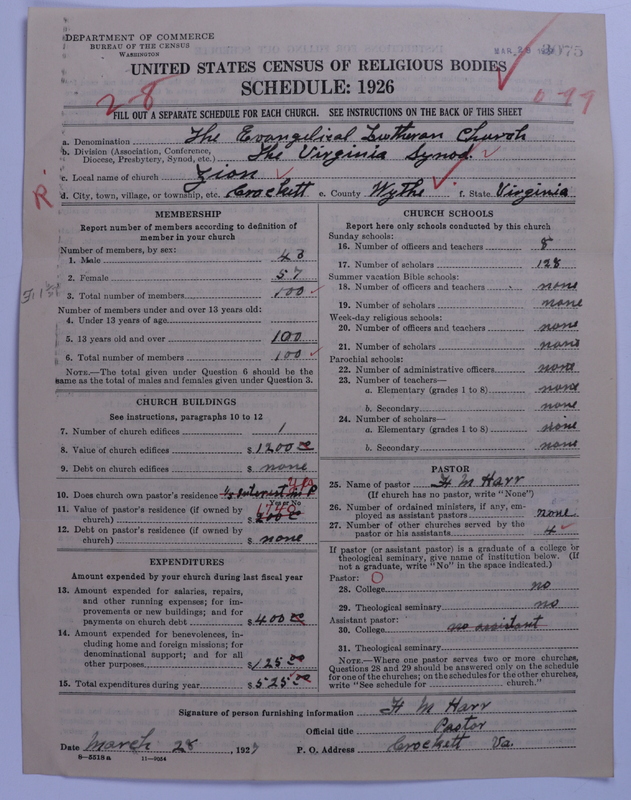 DEPARTMENT OF COMMERCE
BUREAU OF THE CENSUS
WASHINGTON
MAR 28 3075
UNITED STATES CENSUS OF RELIGIOUS BODIES
SCHEDULE: 1926
28
099
FILL OUT A SEPARATE SCHEDULE FOR EACH CHURCH. SEE INSTRUCTIONS ON THE BACK OF THIS SHEET
a. Denomination The Evangelical Lutheran Church
b. Division (Association, Conference, Diocese, Presbytery, Synod, etc.) The Virginia Synod.
c. Local name of church Zion
R
d. City, town, village, or township, etc. Crockett e. County Wythe f. State Virginia
MEMBERSHIP
Report number of members according to definition of member in your church
Number of members, by sex:
1. Male 43
2. Female 57
3. Total number of members 100
Number of members under and over 13 years old:
4. Under 13 years of age
5. 13 years old and over 100
6. Total number of members 100
NOTE.—The total given under Question 6 should be the
same as the total of males and females given under Question 3.
CHURCH BUILDINGS
See instructions, paragraphs 10 to 12
7. Number of church edifices 1
8. Value of church edifices $1200 00
9. Debt on church edifices $ none
10. Does church own pastor's residence 1/5 Interest in P yes
Yes or No
11. Value of pastor's residence (if owned by
church) $
12. Debt on pastor's residence (if owned by
church) $ none
EXPENDITURES
Amount expended by your church during last fiscal year
13. Amount expended for salaries, repairs,
and other running expenses; for im-
provements or new buildings; and for
payments on church debt $400 00
14. Amount expended for benevolences, in-
cluding home and foreign missions; for
denominational support; and for all
other purposes $125 00
15. Total expenditures during year $525 00
CHURCH SCHOOLS
Report here only schools conducted by this church
Sunday schools:
16. Number of officers and teachers 8
17. Number of scholars 128
Summer vacation Bible schools:
18. Number of officers and teachers none
19. Number of scholars none
Week-day religious schools:
20. Number of officers and teachers none
21. Number of scholars none
Parochial schools:
22. Number of administrative officers none
23. Number of teachers—
a. Elementary (grades 1 to 8) none
b. Secondary none
24. Number of scholars—
a. Elementary (grades 1 to 8) none
b. Secondary none
PASTOR
25. Name of pastor H M Harr
(If church has no pastor, write "None")
26. Number of ordained ministers, if any, em-
ployed as assistant pastors none
27. Number of other churches served by the
pastor or his assistants 4
If pastor (or assistant pastor) is a graduate of a college or
theological seminary, give name of institution below. (If
not a graduate, write "No" in the space indicated.)
Pastor: O
28. College no
29. Theological seminary no
Assistant pastor:
30. College no assistant
31. Theological seminary
NOTE.—Where one pastor serves two or more churches,
Questions 28 and 29 should be answered only on the schedule
for one of the churches; on the schedules for the other churches,
write "See schedule for church."
Signature of person furnishing information H M Harr
Official title Pastor
Date March 28, 1927 P. O. Address Crockett Va.
8—5518a 11—9054